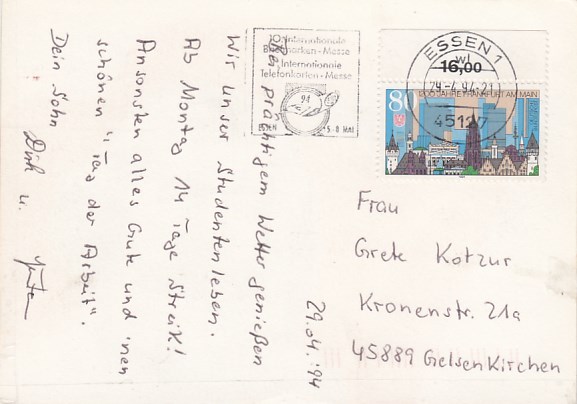 29.04.'94
Bei prächtigem Wetter genießen
Wir unser Studentenleben.
Ab Montag 14 Tage Streik!
Ansonsten alles Gute und 'nen
schönen "Tag der Arbeit".
Dein Sohn Dirk u.
10. Internationale
Briefmarken-Messe
Internationale
Telefonkarten-Messe
94
ESSEN 5.-8 MAI
ESSEN 1
wl
16,00
29.-4.94.-21
45127
80
1200 JAHRE FRANKFURT AM MAIN
Frau
Grete Kotzur
Kronenstr. 21a
45889 Gelsenkirchen